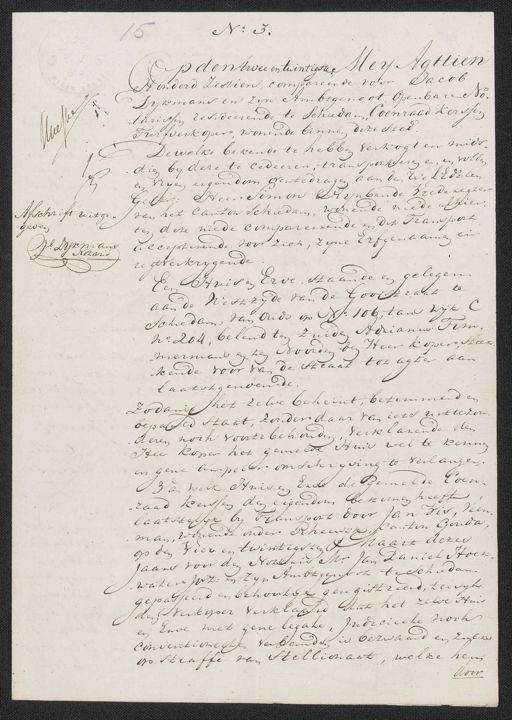 15
N: 3.
Op den twee en twintigste Mey Agttien
Honderd Zestien, compareerde voor Jacob
Dykmans en Zyn Ambtgenoot, Openbare No-
tarissen resideerende te Schiedam, Coenraad Kerssen
Turfverkoper, wonende binnen deze Stad.
Dewelke bekende te hebben Verkogt en mids-
dien by deze te cederen, transporteren en in vollen
en Vryen eigendom optedragen aan den Wel Edelen
Heer Simon Rynbende Vrederegter
van het Canton Schiedam, wonende mede alhier,
ten deze mede compareerende en dit Transport
accepterende voor zich, zyne Erfgenaamen en
regtverkrygende.
Afschrift uitge-
geven
Js Dykmans
Notaris
Een Huis en Erve, staande en gelegen
aan de Westzyde van de Gooistraat te
Schiedam, van Ouds op No 106, tans wyk C
No 204, belend ten Zuiden Adrianus Tim-
mermans en ten Noorden den Heer koper, strek-
kende voor van de Straat tot agter aan
laatstgenoemde.
Zodanig het zelve beheint, betimmerd en
bepaald staat, zonder daar van iets uittezon-
deren noch voortebehouden, Verklarende den
Heer koper het gemelde Huis wel te kennen
en gene ampeler omschryving te verlangen.
Zynde welk Huis en Erve de gemelde Coen-
raad Kerssen den eigendom bekomen heeft,
laatstelyk by Transport door Jan Vis, Veen-
man, wonende onder Rheewyk, Canton Gouda,
op den Vier en twintigsten Maart dezes
Jaars voor den Notaris Mr. Jan Daniel Hoek-
water Jsz. en Zyn Ambtgenoot te Schiedam
gepasseerd en behoorlyk geregistreerd, terwyl
den Verkoper verklaard dat het zelve Huis
en Erve met gene legale, Judicieele noch
conventioneele Verbanden is bezwaard en zulks
op Straffe van Stellionaat, welke hem
door